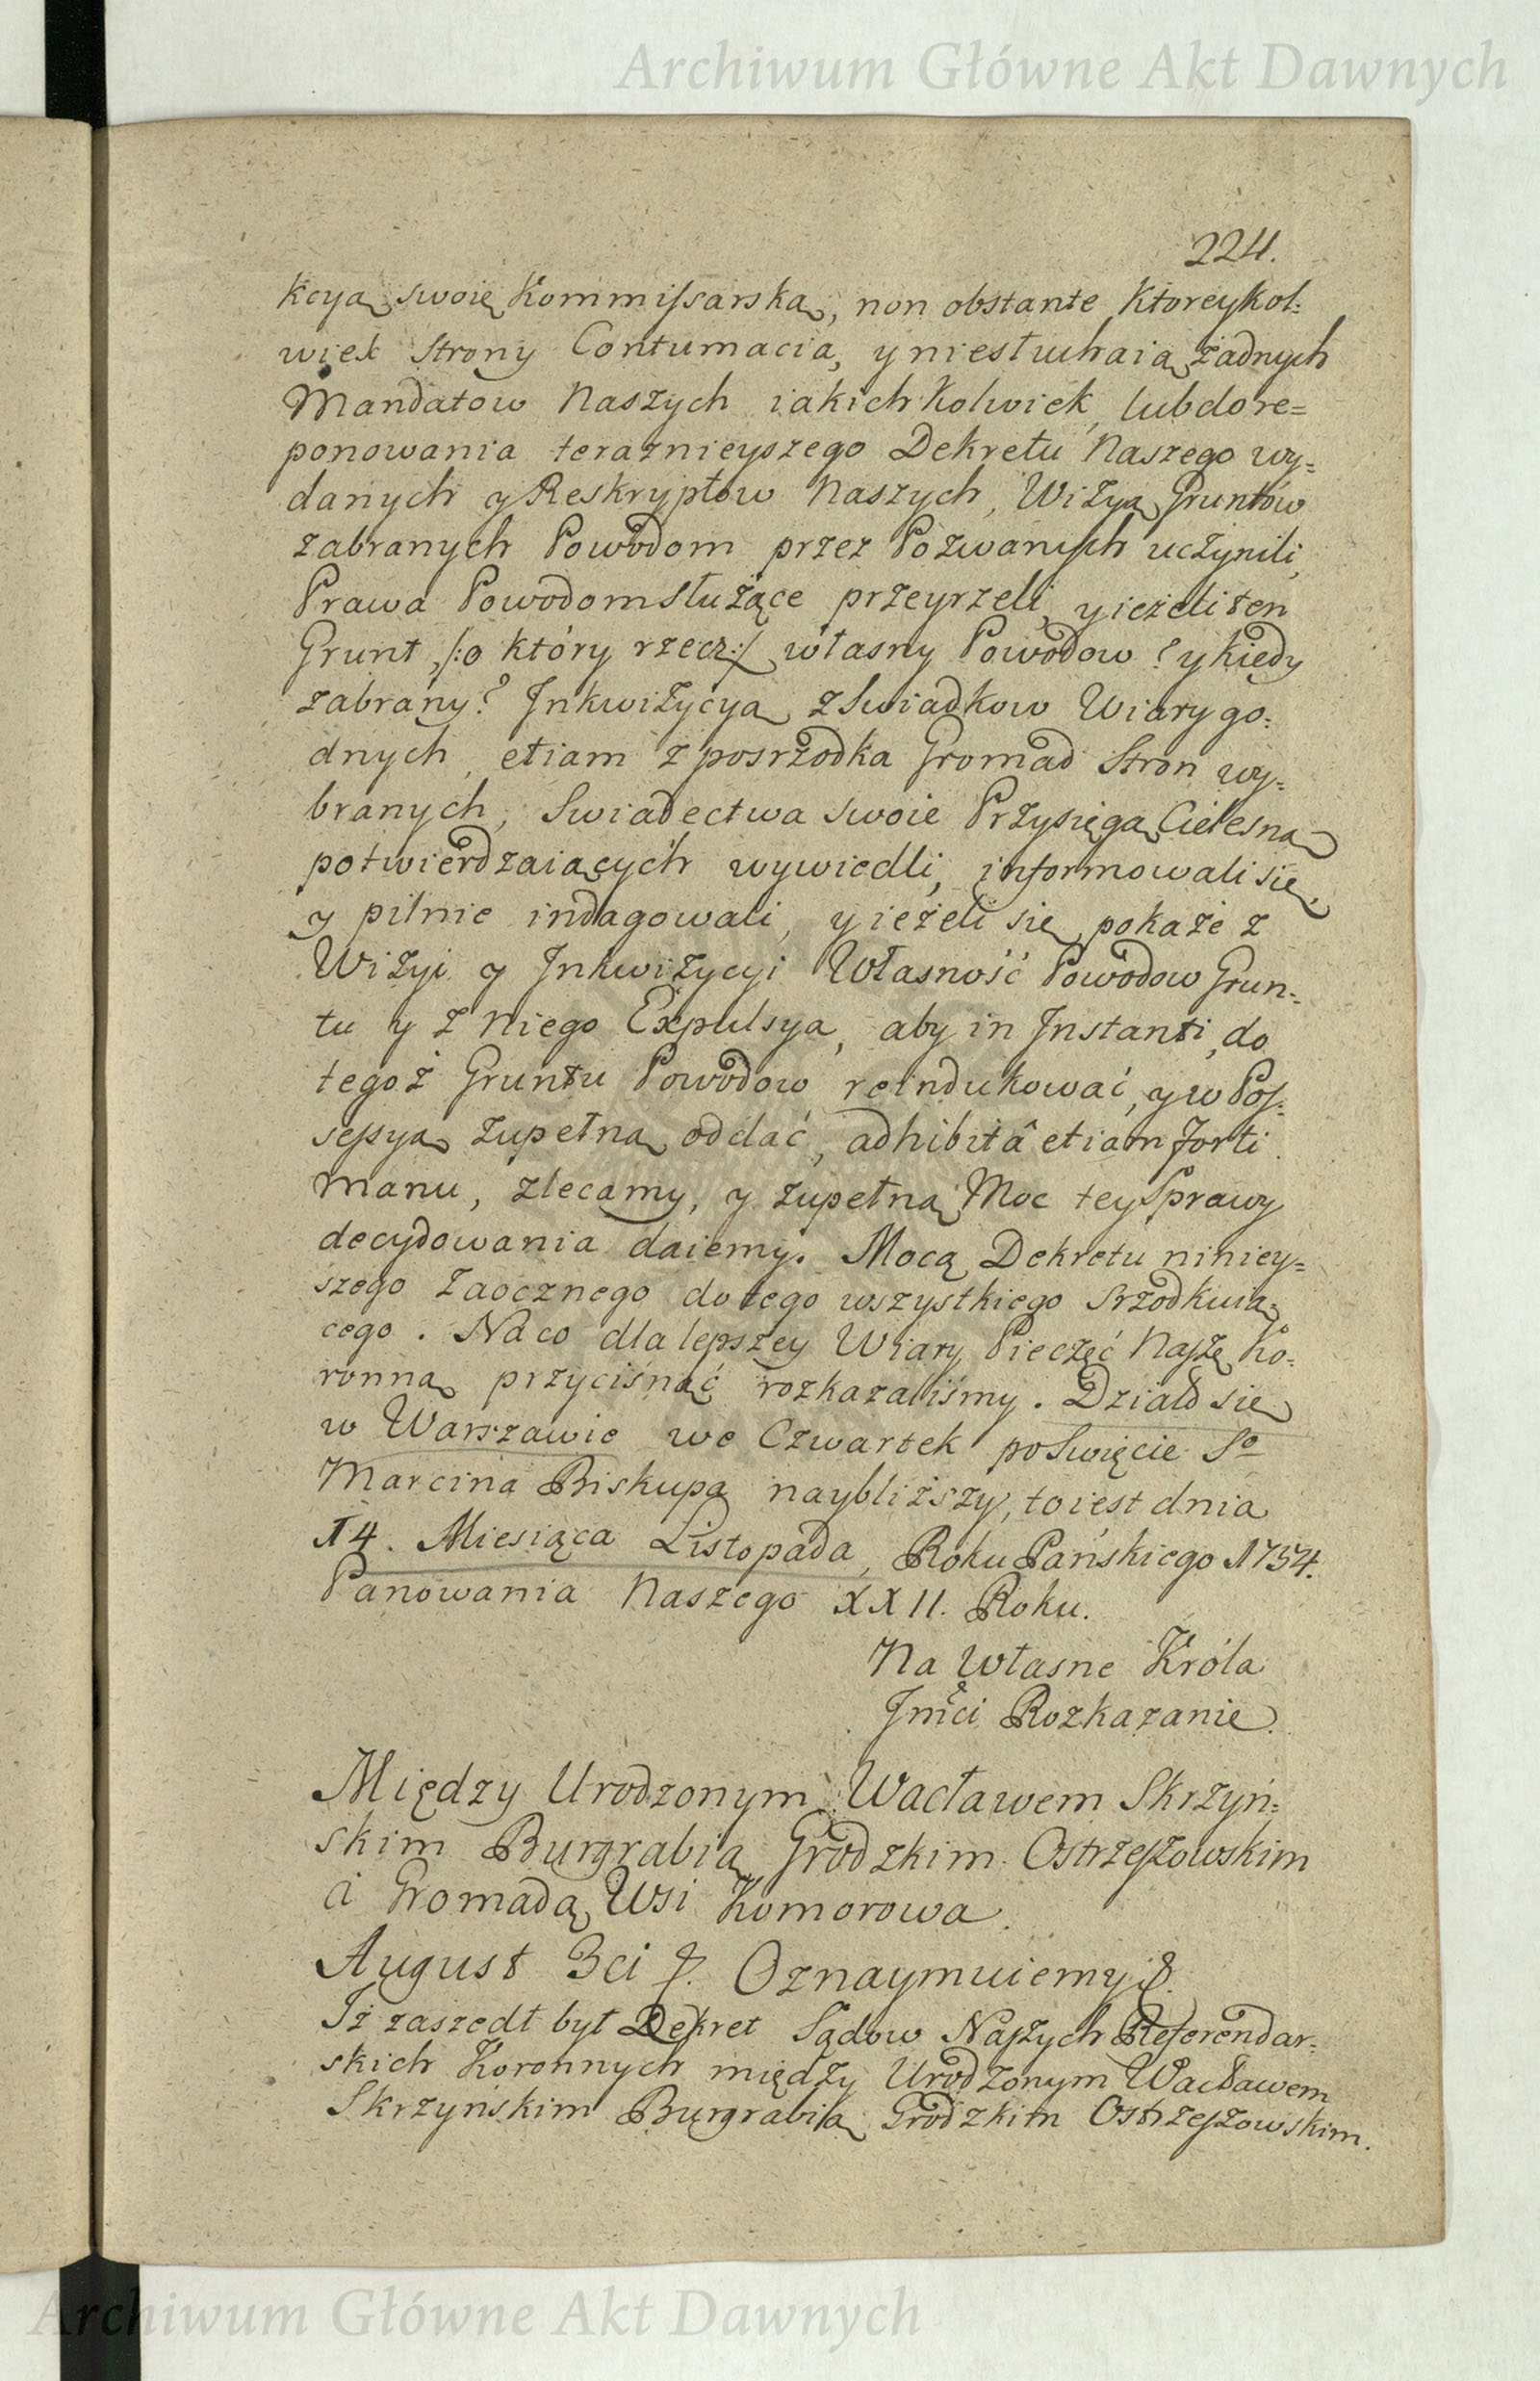 Archiwum Główne Akt Dawnych
224.
kcyą swoię Kommissarską, non obstante ktoreykol:
wiek Strony Contumacia, y niesłuchaiąc żadnych
Mandatow Naszych iakichkolwiek, lub do re=
ponowania teraznieyszego Dekretu Naszego wy=
danych y Reskryptow Naszych, Wizyą Gruntów
zabranych Powodom przez Pozwanych uczynili,
Prawa Powodom służące przeyrzeli, y ieżeli ten
Grunt, /:o który rzecz:/ własny Powodow? y kiedy
zabrany? Jnkwizycyą z Swiadkow Wiary go:
dnych, etiam z posrzodka Gromad Stron wy=
branych, Swiadectwa swoie Przysięgą Cielesną
potwierdzaiących wywiedli, informowali się,
y pilnie indagowali, y ieżeli się pokaże z
Wizyi y Jnkwizycyi Własność Powodow Grun:
tu y z Niego Expulsya, aby in Jnstanti, do
tegoż Gruntu Powodow reindukować, y w Pos:
sessyą zupełną oddać, adhibitâ etiam forti
manu, zlecamy, y zupełną Moc tey Sprawy
decydowania daiemy. Mocą Dekretu niniey=
szego Zaocznego do tego wszystkiego srzodkuią:
cego. Na co dla lepszey Wiary Pieczęć Naszę Ko:
ronną przycisnąć rozkazaliśmy. Działo się
w Warszawie we Czwartek po Swięcie So
Marcina Biskupa naybliższy, to iest dnia
14. Miesiąca Listopada, Roku Pańskiego 1754.
Panowania Naszego XXII. Roku.
Na Własne Króla
Jmci Rozkazanie.
Między Urodzonym Wacławem Skrzyń:
skim Burgrabią Grodzkim Ostrzeszowskim
a Gromadą Wsi Komorowa.
August 3ci &. Oznaymuiemy i&.
Iż zaszedł był Dekret Sądow Naszych Referendar:
skich Koronnych między Urodzonym Wacławem
Skrzyńskim Burgrabią Grodzkim Ostrzeszowskim.
Archiwum Główne Akt Dawnych